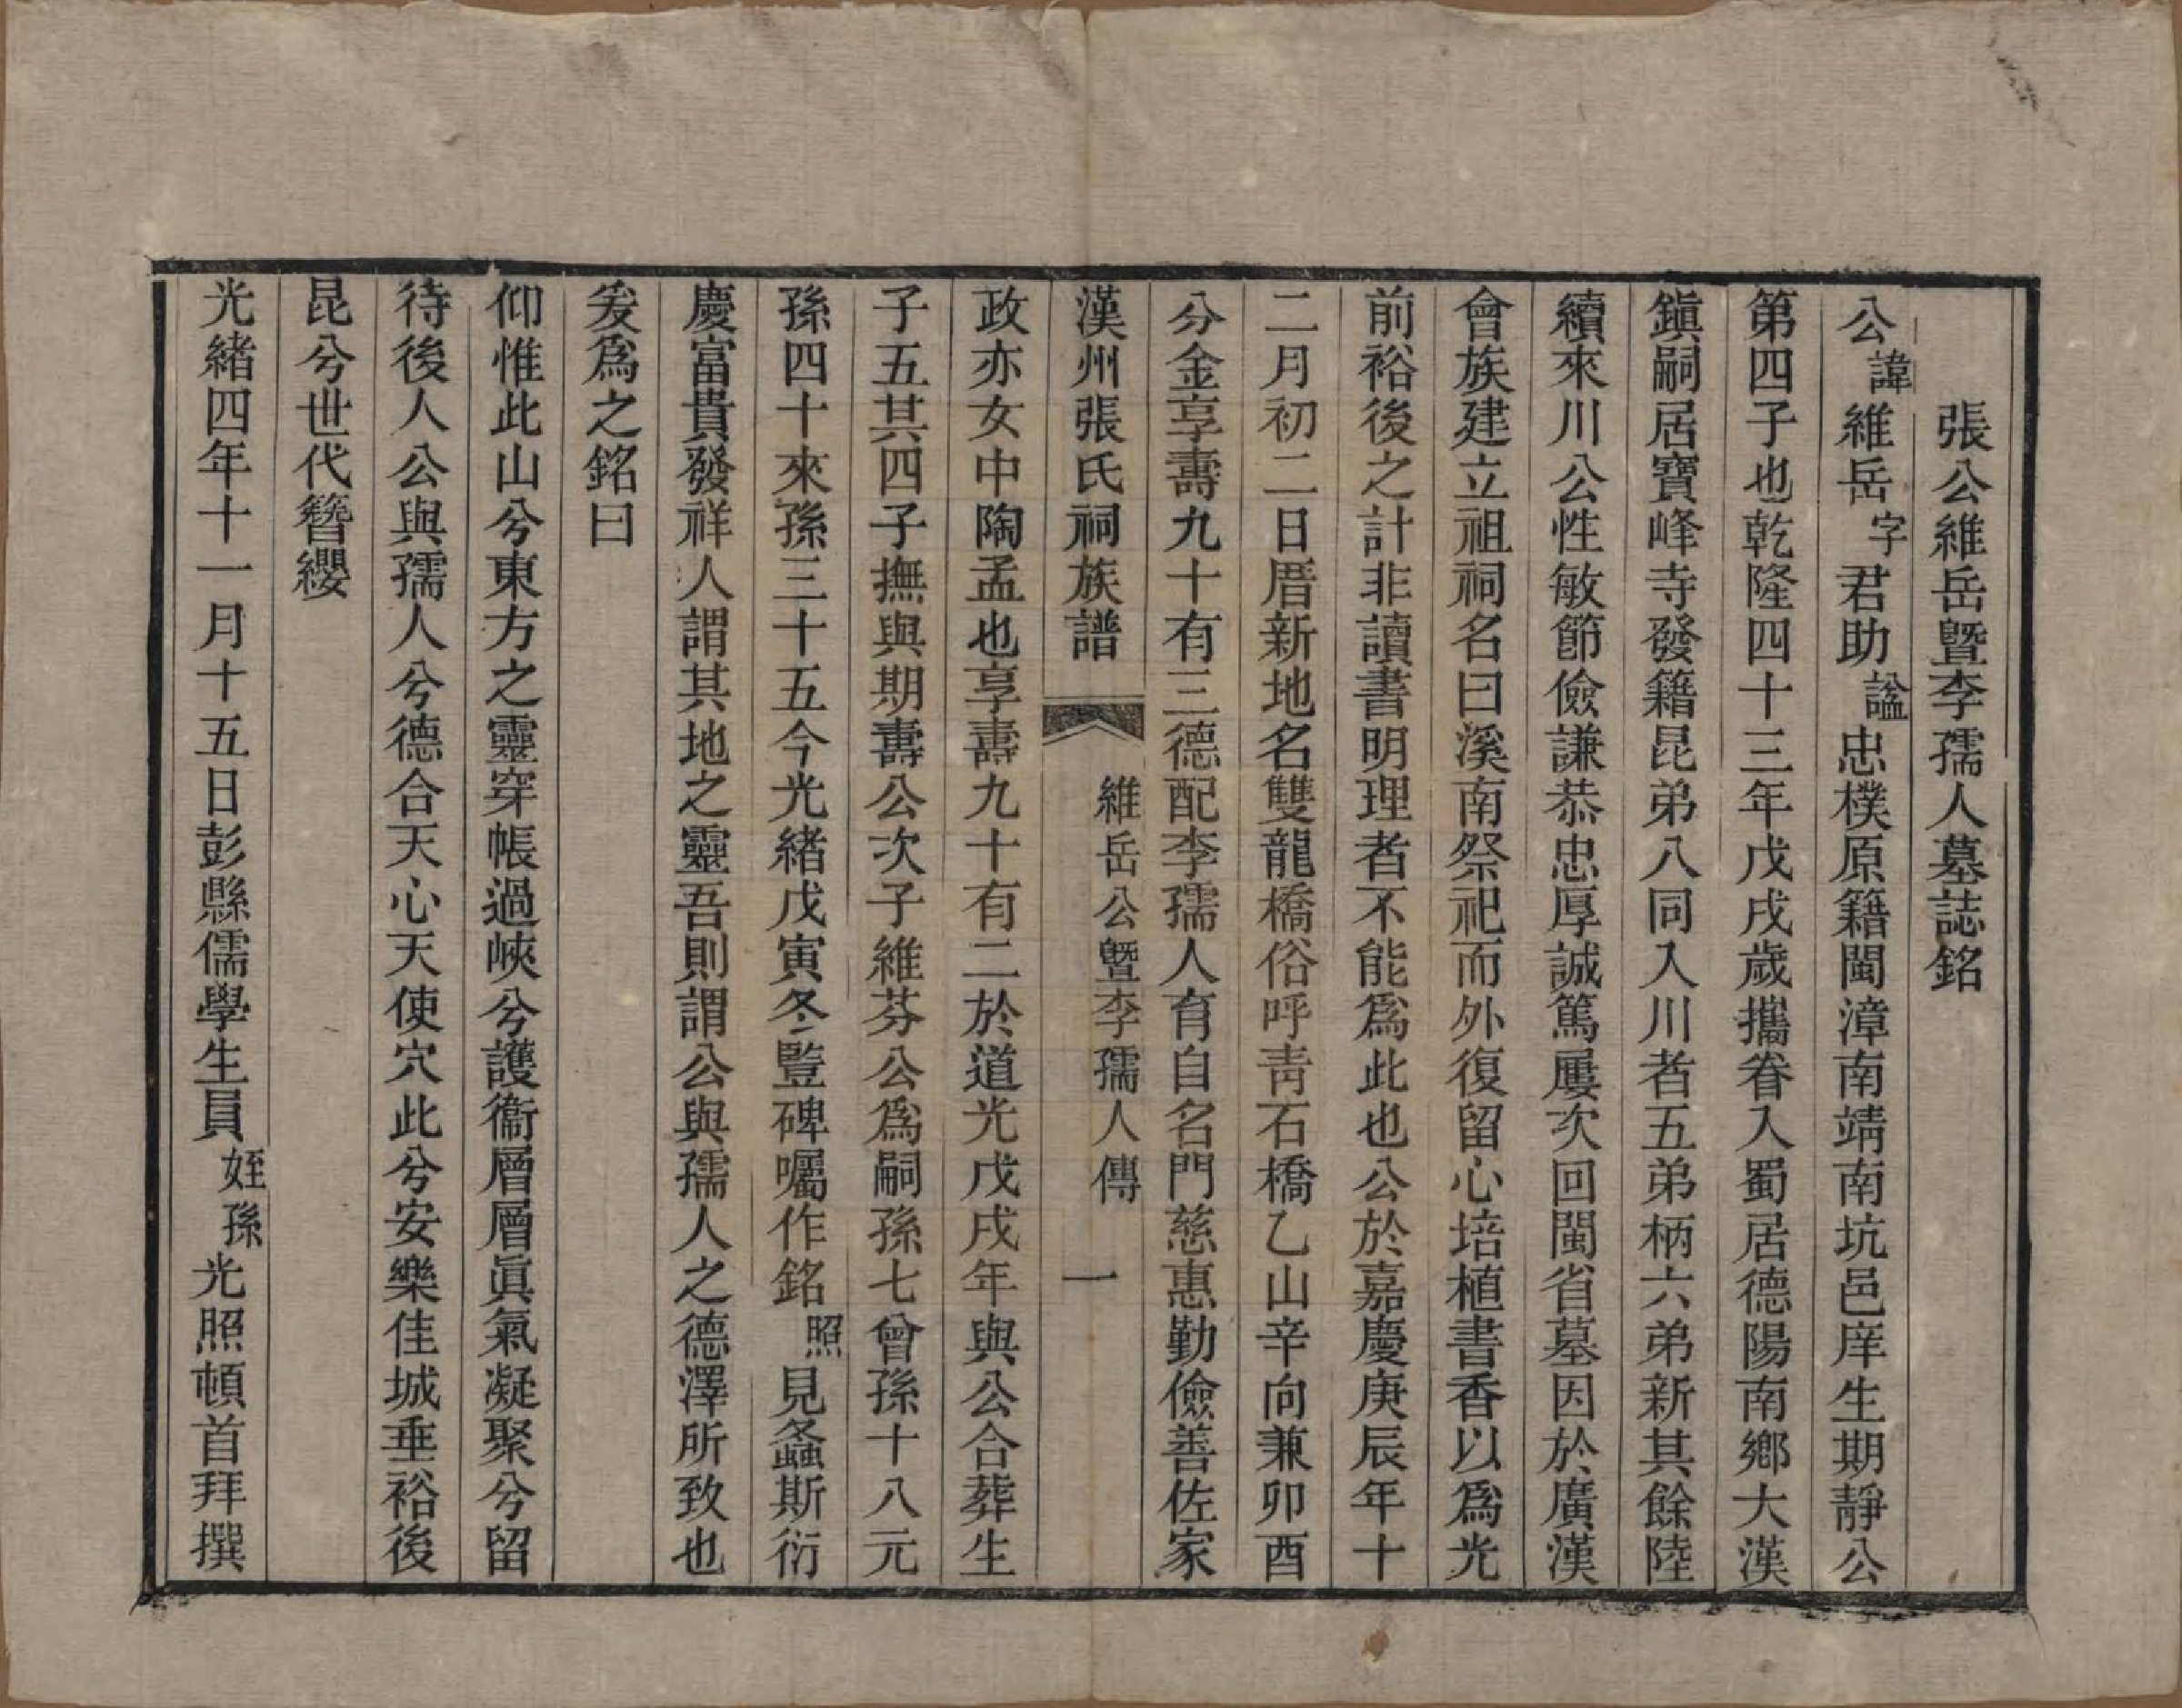 張公維岳暨李孺人墓誌銘
公諱維岳字君助諡忠樸原籍閩漳南靖南坑邑庠生期靜公
第四子也乾隆四十三年戊戌歲攜眷入蜀居德陽南鄉大漢
鎭嗣居寶峰寺發籍昆弟八同入川者五弟柄六弟新其餘陸
續來川公性敏節儉謙恭忠厚誠篤屢次回閩省墓因於廣漢
會族建立祖祠名曰溪南祭祀而外復留心培植書香以爲光
前裕後之計非讀書明理者不能爲此也公於嘉慶庚辰年十
二月初二日厝新地名雙龍橋俗呼靑石橋乙山辛向兼卯酉
分金享壽九十有三德配李孺人育自名門慈惠勤儉善佐家
漢州張氏祠族譜 維岳公暨李孺人傳 一
政亦女中陶孟也享壽九十有二於道光戊戌年與公合葬生
子五其四子撫與期壽公次子維芬公爲嗣孫七曾孫十八元
孫四十來孫三十五今光緒戊寅冬豎碑囑作銘照見螽斯衍
慶富貴發祥人謂其地之靈吾則謂公與孺人之德澤所致也
爰爲之銘曰
仰惟此山兮東方之靈穿帳過峽兮護衞層層眞氣凝聚兮留
待後人公與孺人兮德合天心天使穴此兮安樂佳城垂裕後
昆兮世代簪纓
光緒四年十一月十五日彭縣儒學生員姪孫光照頓首拜撰